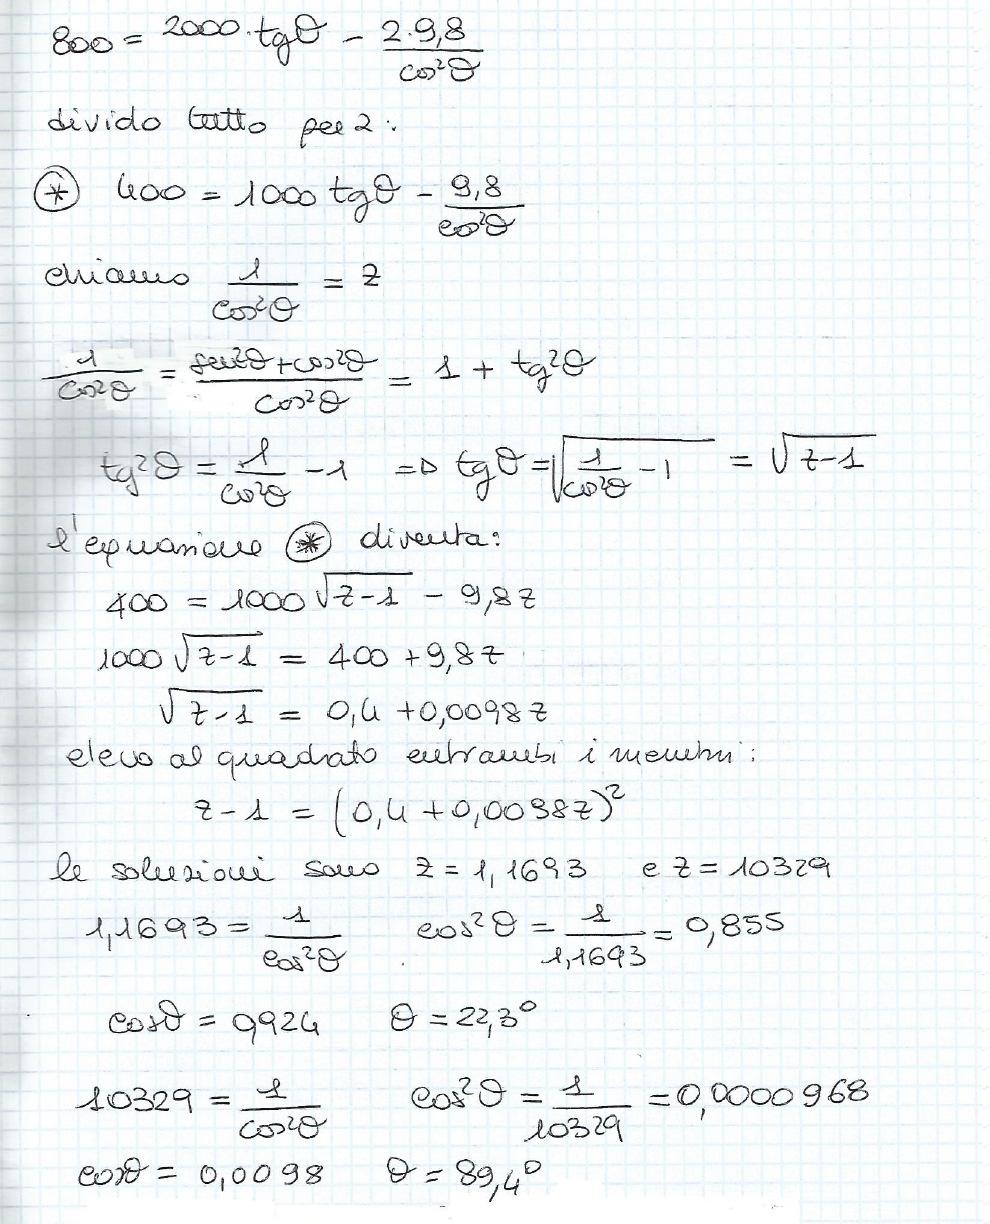 800 = 2000·tgθ - 2·9,8/cos²θ
divido tutto per 2:
(*) 400 = 1000 tgθ - 9,8/cos²θ
chiamo 1/cos²θ = z
1/cos²θ = (sen²θ+cos²θ)/cos²θ = 1 + tg²θ
tg²θ = 1/cos²θ - 1 => tgθ = √(1/cos²θ - 1) = √(z-1)
l'equazione (*) diventa:
400 = 1000 √(z-1) - 9,8z
1000 √(z-1) = 400 + 9,8z
√(z-1) = 0,4 + 0,0098z
elevo al quadrato entrambi i membri:
z - 1 = (0,4 + 0,0098z)²
le soluzioni sono z = 1,1693 e z = 10329
1,1693 = 1/cos²θ cos²θ = 1/1,1693 = 0,855
cosθ = 0,924 θ = 22,3°
10329 = 1/cos²θ cos²θ = 1/10329 = 0,0000968
cosθ = 0,0098 θ = 89,4°